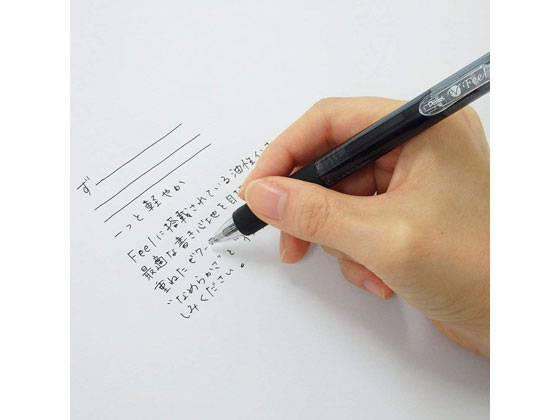 ず
ーっと軽やか
Feelに搭載されている油性イン
最適な書き心地を目
重ねた
"なめらかさ"と
しみください。
Pentel V Feel